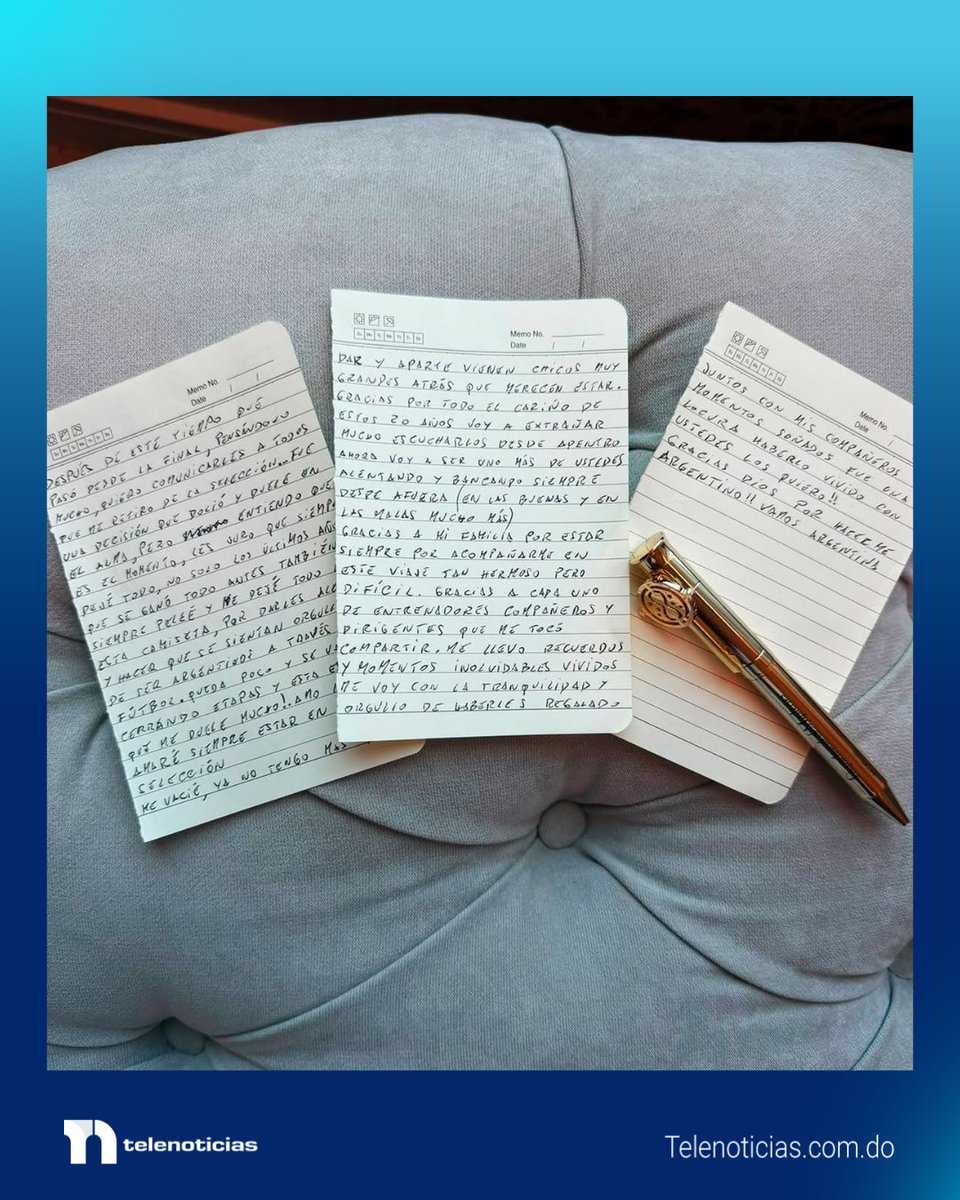 Memo No.
Date / /
DESPUES DE ESTE TIEMPO QUE
PASÓ DESDE LA FINAL, PENSÁNDOLO
MUCHO, QUIERO COMUNICARLES A TODOS
QUE ME RETIRO DE LA SELECCIÓN.. FUE
UNA DECISIÓN QUE DOLIÓ Y DUELE EN
EL ALMA, PERO ENTIENDO QUE
ES EL MOMENTO, LES JURO QUE SIEMP
DEJÉ TODO, NO SOLO LOS ÚLTIMOS AÑOS
QUE SE GANÓ TODO ANTES TAMBIÉN
SIEMPRE PELEÉ Y ME DEJÉ TODO
ESTA CAMISETA, POR DARLES ALE
Y HACER QUE SE SIENTAN ORGULL
DE SER ARGENTINOS A TRAVÉS
FÚTBOL. QUEDA POCO Y SE VA
CERRANDO ETAPAS Y ESTA ES
QUÉ ME DUELE MUCHO! AMO
AMARÉ SIEMPRE ESTAR EN
SELECCIÓN
ME VACIÉ, YA NO TENGO MAS
Memo No.
Date / /
DAR Y APARTE VIENEN CHICOS MUY
GRANDES ATRÁS QUE MERECEN ESTAR.
GRACIAS POR TODO EL CARIÑO DE
ESTOS 20 AÑOS VOY A EXTRAÑAR
MUCHO ESCUCHARLOS DESDE ADENTRO
AHORA VOY A SER UNO MÁS DE USTEDES
ALENTANDO Y BANCANDO SIEMPRE
DESDE AFUERA (EN LAS BUENAS Y EN
LAS MALAS MUCHO MÁS)
GRACIAS A MI FAMILIA POR ESTAR
SIEMPRE POR ACOMPAÑARME EN
ESTE VIAJE TAN HERMOSO PERO
DIFÍCIL. GRACIAS A CADA UNO
DE ENTRENADORES COMPAÑEROS Y
DIRIGENTES QUE ME TOCÓ
COMPARTIR. ME LLEVO RECUERDOS
Y MOMENTOS INOLVIDABLES VIVIDOS
ME VOY CON LA TRANQUILIDAD Y
ORGULLO DE HABERLES REGALADO
Memo No.
Date
JUNTOS CON MIS COMPAÑEROS
MOMENTOS SOÑADOS FUE UNA
LOCURA HABERLO VIVIDO CON
USTEDES LOS QUIERO!!
GRACIAS DIOS POR HACERME
ARGENTINO!! VAMOS ARGENTINA
telenoticias
Telenoticias.com.do